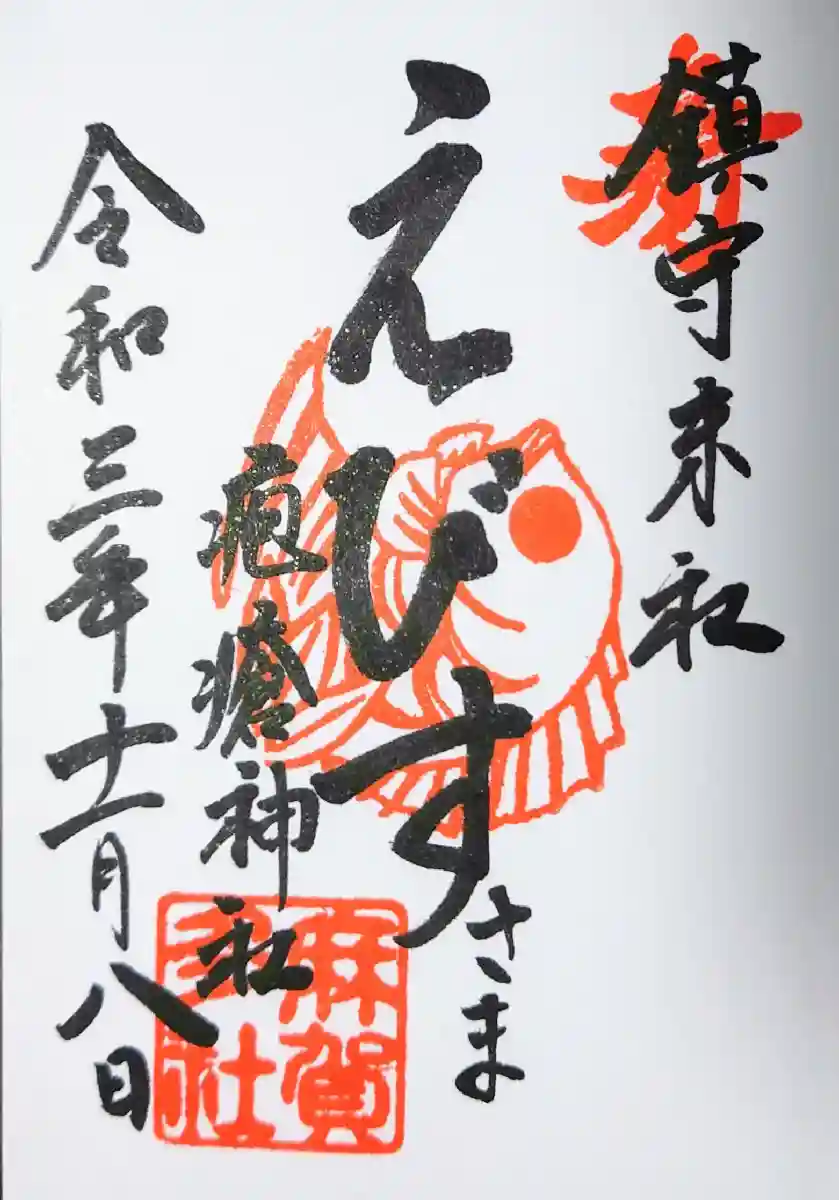 鎮守末社
えびす
さま
疱瘡神社
令和三年十一月八日
麻賀
多社